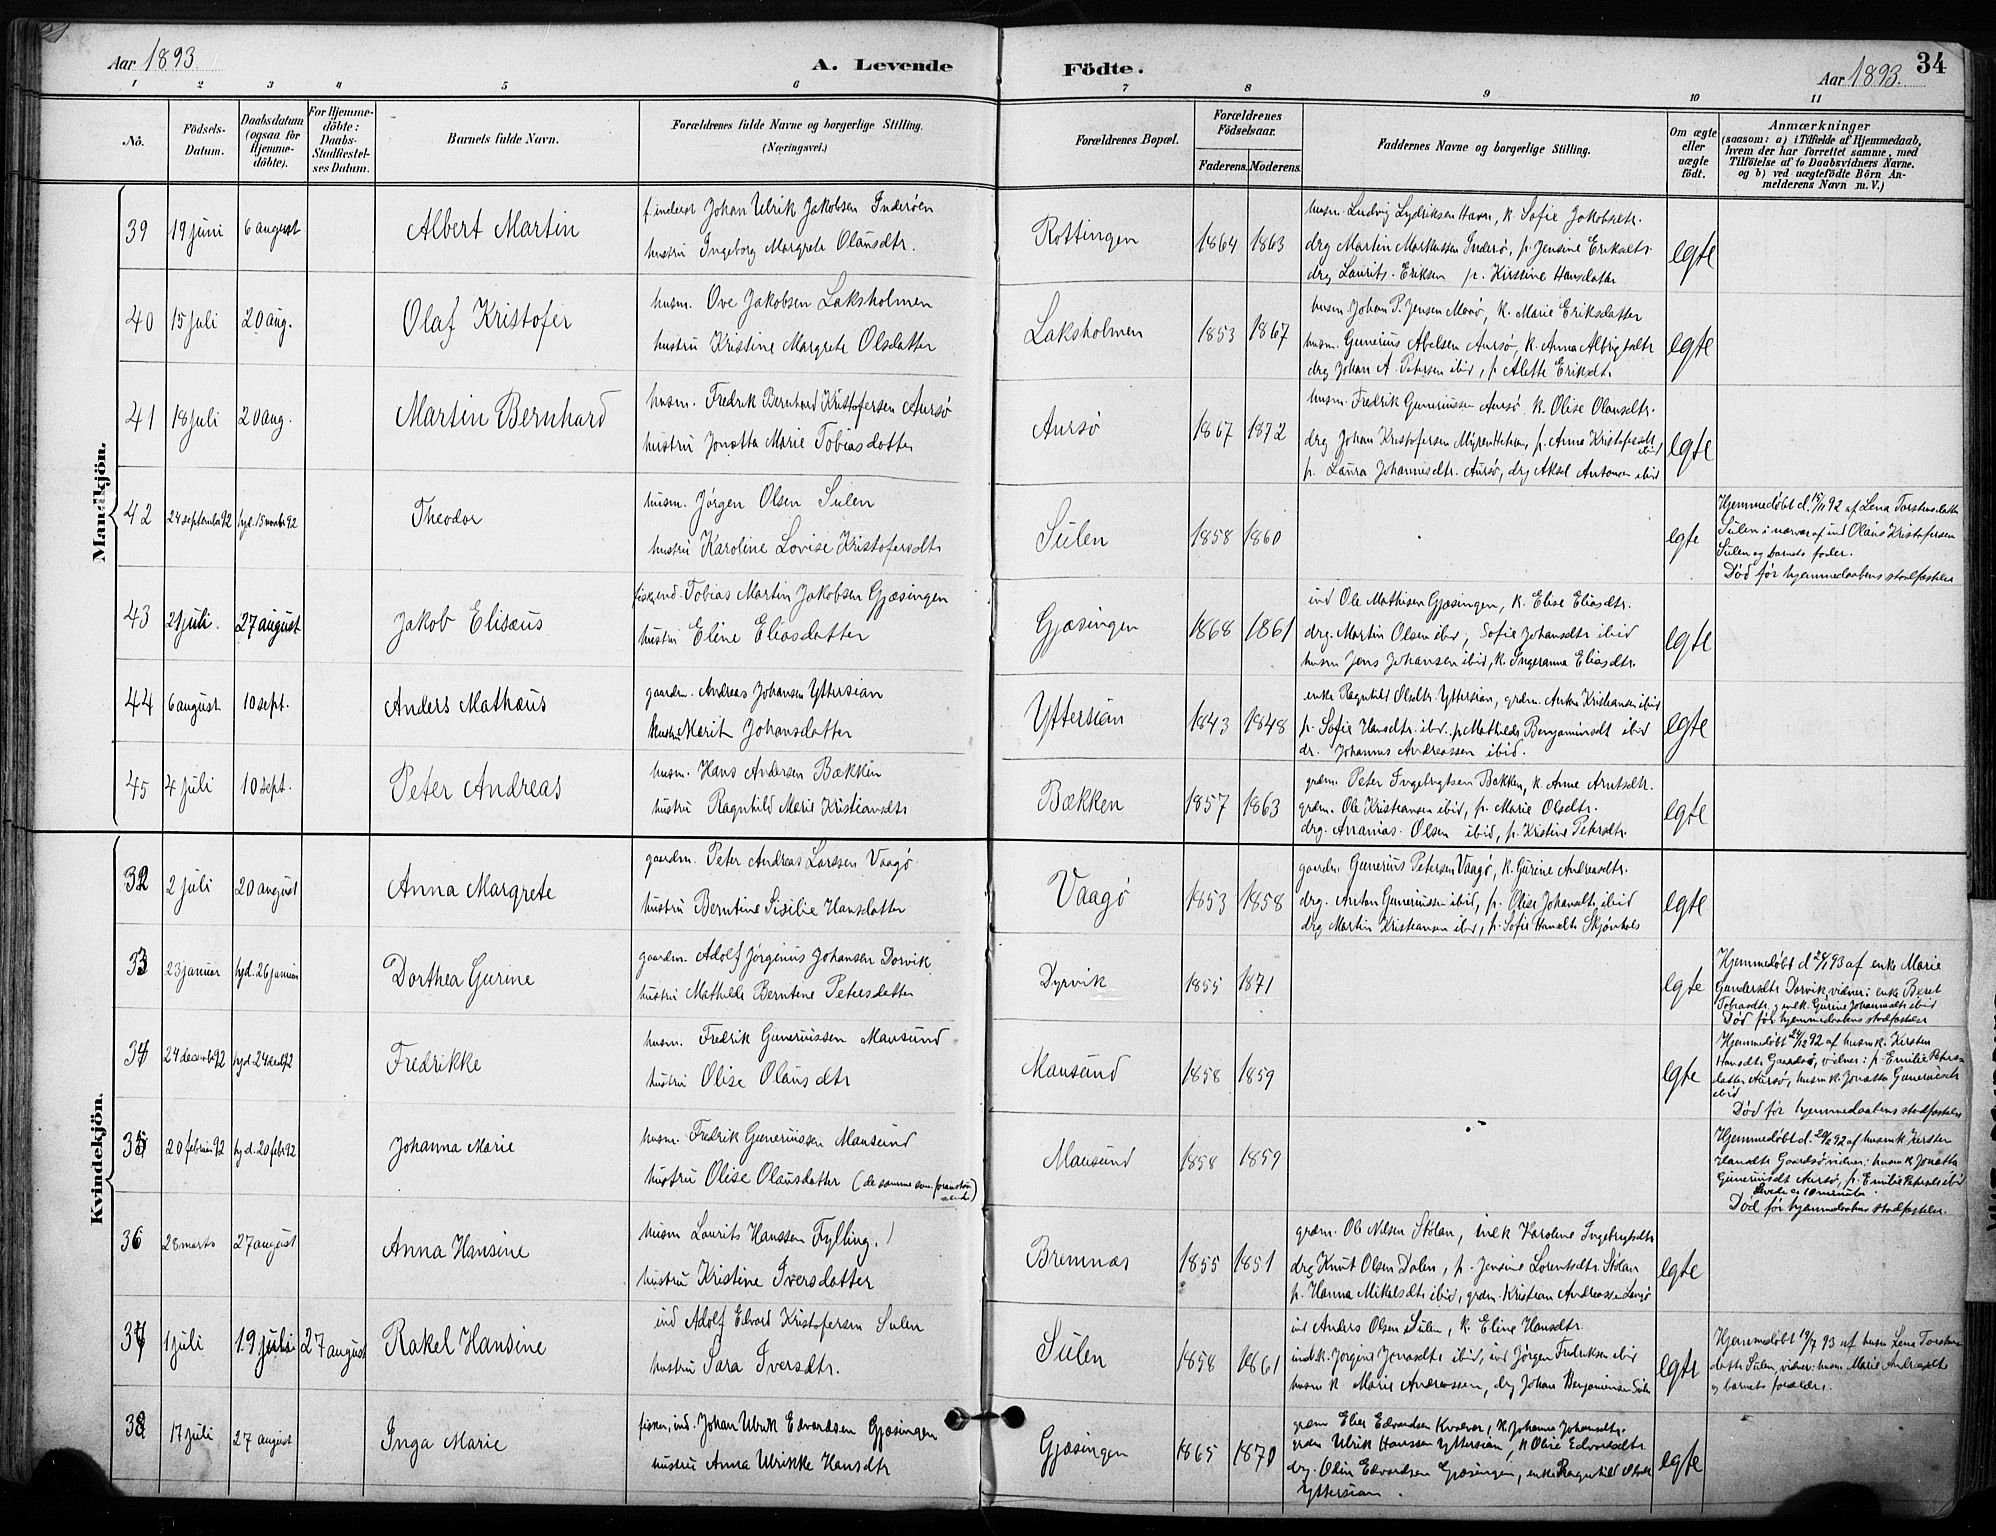 Aar 1893
A. Levende Fødte.
Aar 1893.
34
1 2 3 4 5 6 7 8 9 10 11
No.
Fødsels-Datum.
Daabsdatum (ogsaa for Hjemme-døbte).
For Hjemme-døbte: Daabs-Stadfæstelses Datum.
Barnets fulde Navn.
Forældrenes fulde Navne og borgerlige Stilling. (Næringsvei.)
Forældrenes Bopæl.
Forældrenes Fødselsaar.
Faderens. Moderens.
Faddernes Navne og borgerlige Stilling.
Om ægte eller uægte født.
Anmærkninger (saasom: a) i Tilfælde af Hjemmedaab, hvem der har forrettet samme, med Tilføielse af to Daabsvidners Navne. og b) ved uægtefødte Børn Anmelderens Navn m. V.)
Mandkjøn.
39 19 juni 6 august Albert Martin
Johan Ulrik Jakobsen Inderøen
hustru Ingeborg Margrete Olausdtr.
Rottingen 1864 1863
husm. Ludvig Lydriksen Havn, k. Sofie Jakobsdtr.
drg Martin Markussen Inderø, p. Jensine Eriksdtr.
drg Laurits Eriksen p. Kirstine Hansdatter
egte
40 15 juli 20 aug. Olaf Kristofer
husm. Ove Jakobsen Laksholmen
hustru Kristine Margrete Olsdatter
Laksholmen 1853 1867
husm. Johan P. Jensen, k. Marie Eriksdatter
husm. Gunerius Abelsen Aursø, k. Anna Albrigtsdtr
drg Johan A. Petersen ibid, p Alette Eriksdtr
egte
41 18 juli 20 aug. Martin Bernhard
husm. Fredrik Bernhard Kristofersen Aursø
hustru Jonetta Marie Tobiasdatter
Aursø 1867 1872
husm. Fredrik Guneriussen Aursø, k. Olise Olausdtr.
drg Johan Kristofersen, p. Anne Kristofersdtr ibid
p. Laura Johannesdtr. Aursø, drg Aksel Antonsen ibid
egte
42 24 september 92 hjd. 15 novbr 92 Theodor
husm. Jørgen Olsen Sulen
hustru Karoline Lovise Kristofersdtr
Sulen 1858 1860
egte
Hjemmedøbt d. 15/11 92 af Lena Torstensdatter
Sulen i nærvær af ind Olaus Kristofersen
Sulen og barnets fader.
Død før hjemmedaabens stadfæstelse
43 21 juli. 27 august Jakob Elisæus
fisker ind. Tobias Martin Jakobsen Gjæsingen
hustru Eline Eliasdatter
Gjæsingen 1868 1861
ind Ole Mathisen Gjæsingen, k. Elise Eliasdtr.
drg. Martin Olsen ibid, Sofie Johansdtr ibid
husm Jens Johansen ibid, k. Ingeranna Eliasdtr.
egte
44 6 august 10 sept. Anders Mathæus
gaardm. Andreas Johansen Yttersian
hustru Marit Johansdatter
Yttersian 1843 1848
enke Ragnhild Olsdtr. Yttersian, grdm. Kristiansen ibid
p. Sofie Hansdtr. ibid. p Mathilde Benjaminsdt ibid
dr. Johannes Andreassen ibid.
egte
45 4 juli 10 sept. Peter Andreas
husm. Hans Andersen Bækken
hustru Ragnhild Marie Kristiansdtr
Bækken 1857 1863
grdm. Peter Ingebrigtsen Bækken, k. Anne Arntsdtr.
grdm. Ole Kristiansen ibid, p. Marie Olsdtr.
drg. Ananias Olsen ibid, p. Kristine Petersdtr.
egte
Kvindekjøn.
32 2 juli 20 august Anna Margrete
gaardm. Peter Andreas Larssen Vaagø
hustru Berntine Sisilie Hansdatter
Vaagø 1853 1858
gaardm. Gunerius Petersen Vaagø, k. Gurine Andreasdtr.
drg. Anton Guneriussen ibid, p. Olise Johansdtr ibid
drg Martin Kristiansen ibid, p. Sofie Hansdtr
egte
33 23 januar hjd. 26 januar Dorthea Gurine
gaardm. Adolf Jørginus Johansen Dorvik
hustru Mathilde Berntine Petersdatter
Dyrvik 1855 1871
egte
Hjemmedøbt d 26/1 93 af enke Marie
Gundersdtr Dorvik, vidner: enke Beret
Tobiasdtr, Gurine Johannsdtr ibid
Død før hjemmedaabens stadfæstelse
34 24 december 92 hjd 24 decb 92 Fredrikke
husm. Fredrik Guneriussen Mausund
hustru Olise Olausdtr
Mausund 1858 1859
egte
Hjemmedøbt 24/12 92 af husm.k. Kirsten
Hansdtr, vidner: p. Emilie Petersdatter
Aursø, husm.k. Jonetta Guneriusdtr
ibid
Død før hjemmedaabens stadfæstelse
35 20 februar 92 hjd. 20 febr 92 Johanna Marie
husm. Fredrik Guneriussen Mausund
hustru Olise Olausdatter (de samme som foranstaaende)
Mausund 1858 1859
Hjemmedøbt d. 20/2 92 af husm k Kirsten
Hansdtr vidner: husm k Jonetta
Guneriusdt Aursø, p. Emilie Petersdtr ibid
levede ca 10 minuter.
Død før hjemmedaabens stadfæstelse.
36 28 marts 27 august Anna Hansine
husm Laurits Hanssen Fylling.
hustru Kristine Iversdatter
Bremnæs 1855 1851
grdm. Ole Nilsen Stølan, Karoline Ingebrigtsdtr
drg Knut Olsen Dalen, p. Jensine Lorentsdtr. Stølan
p. Hanna Mikalsdtr ibid, grdm. Kristian Andreassen
egte
37 1 juli 19 juli 27 august Rakel Hansine
ind Adolf Edvard Kristofersen Sulen
hustru Sara Iversdtr.
Sulen 1858 1861
ind Anders Olsen Sulen, k. Eline Hansdtr
ind.k. Jorgine Jonasdtr ibid, ind Jørgen Fredriksen ibid
husm k Marie Andreassen, drg Johan Benjaminsen Sulen
egte
Hjemmedøbt 19/7 93 af husm Lena Torstensdatter
Sulen, vidner: husm. Marie Andreasdtr
og barnets forældre.
38 17 juli 27 august Inga Marie
fisker, ind. Johan Ulrik Edvardsen Gjæsingen
hustru Anna Ulrikke Hansdtr
Gjæsingen 1865 1870
grdm Elias Edvardsen, k. Johanna Johansdtr.
grdm Ulrik Hanssen Yttersian, k Olise Edvardsdtr
drg. Odin Edvardsen Gjæsingen, enke Ragnhild Olsdtr
Yttersian.
egte